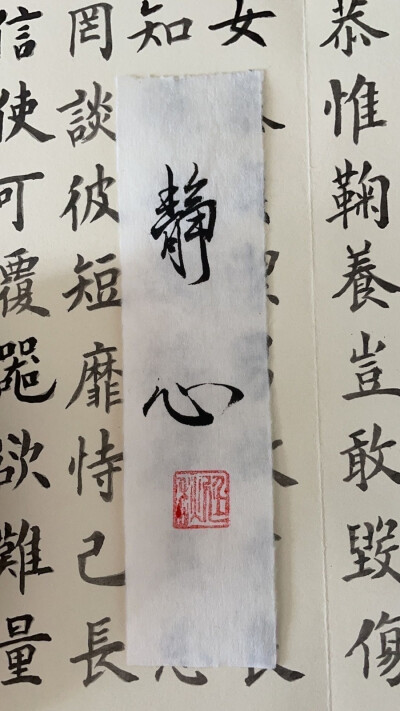 恭惟鞠養豈敢毀傷
女
知
靜心
罔談彼短靡恃己長
信使可覆器欲難量